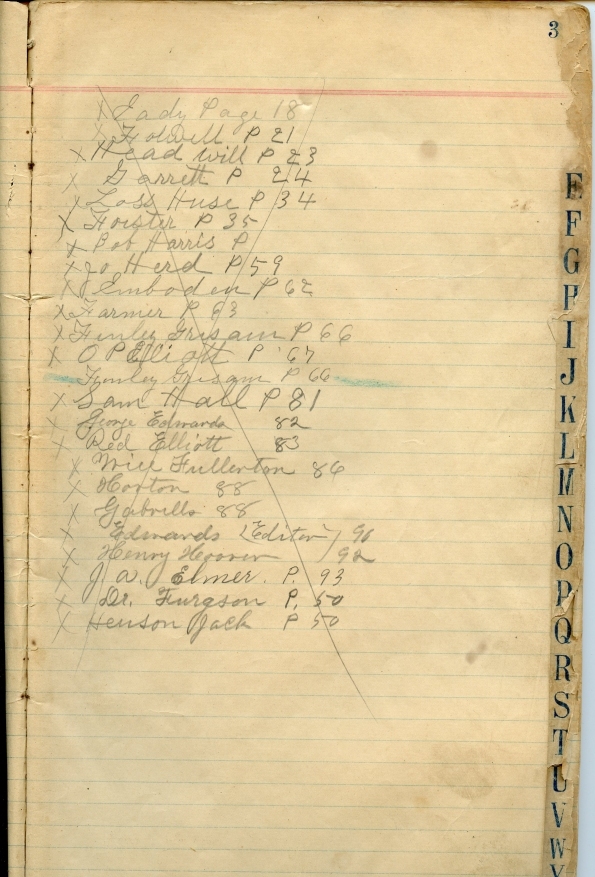 3
x Eady Page 18
x Holdell P 21
x Head will P 23
x Garrett P 24
x Loss Huse P 34
x Hoister P 35
x Bob Harris P
x Jo Herd P 59
x Emboden P 62
x Farmer P 63
x Finley Grisam P 66
x O P Elliott P 67
Finley Grisam P 66
x Sam Hall P 81
x George Edwards 82
x Red Elliott 83
x Will Fullerton 86
x Horton 88
x Gabrills 88
x Edwards (Editor) 90
x Henry Hoover 92
x J. A. Elmer. P. 93
x Dr. Furgson P. 50
x Henson Jack P 50
E
F
G
H
I
J
K
L
M
N
O
P
Q
R
S
T
U
V
W